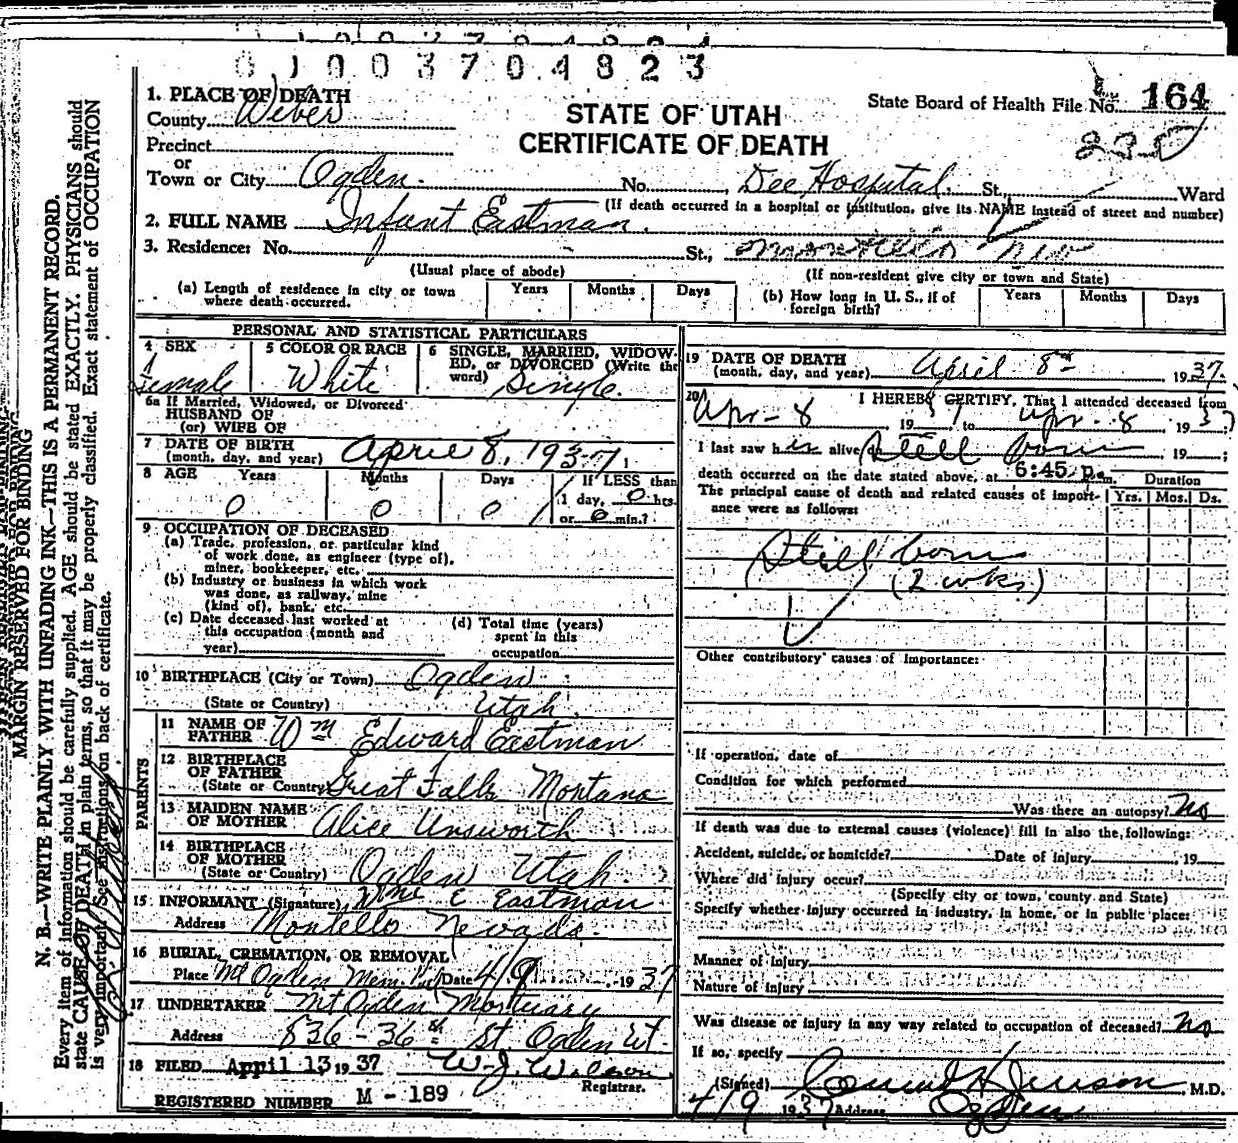 01003704823
1. PLACE OF DEATH
County Weber
Precinct
or
Town or City Ogden. No. Dee Hospital. St., Ward
(If death occurred in a hospital or institution, give its NAME instead of street and number)
STATE OF UTAH
CERTIFICATE OF DEATH
State Board of Health File No. 164
230
2. FULL NAME Infant Eastman.
3. Residence: No. St., Montello Nev
(Usual place of abode) (If non-resident give city or town and State)
(a) Length of residence in city or town where death occurred. Years Months Days
(b) How long in U. S., if of foreign birth? Years Months Days
PERSONAL AND STATISTICAL PARTICULARS
4 SEX Female
5 COLOR OR RACE White
6 SINGLE, MARRIED, WIDOWED, or DIVORCED (Write the word) Single.
6a If Married, Widowed, or Divorced
HUSBAND OF
(or) WIFE OF
7 DATE OF BIRTH
(month, day, and year) April 8, 1937.
8 AGE Years Months Days If LESS than
0 0 0 1 day, 0 hrs.
or 0 min.?
9 OCCUPATION OF DECEASED
(a) Trade, profession, or particular kind
of work done, as engineer (type of),
miner, bookkeeper, etc.
(b) Industry or business in which work
was done, as railway, mine
(kind of), bank, etc.
(c) Date deceased last worked at
this occupation (month and
year)
(d) Total time (years)
spent in this
occupation
10 BIRTHPLACE (City or Town) Ogden
(State or Country) Utah.
PARENTS
11 NAME OF FATHER Wm Edward Eastman
12 BIRTHPLACE OF FATHER
(State or Country) Great Falls Montana
13 MAIDEN NAME OF MOTHER Alice Unsworth
14 BIRTHPLACE OF MOTHER
(State or Country) Ogden Utah.
15 INFORMANT (Signature) Wm E Eastman
Address Montello Nevada.
16 BURIAL, CREMATION, OR REMOVAL
Place Mt Ogden Mem. Park Date 4/9 1937
17 UNDERTAKER Mt Ogden Mortuary
Address 836 - 36th St. Ogden Ut.
18 FILED April 13 1937 W. J. Wilson
Registrar.
REGISTERED NUMBER M - 189
19 DATE OF DEATH
(month, day, and year) April 8th 1937.
20 I HEREBY CERTIFY, That I attended deceased from
Apr - 8 1937 to Apr. 8 1937;
I last saw h alive on Still born 19 ;
death occurred on the date stated above, at 6:45 p.m.
The principal cause of death and related causes of importance were as follows:
Duration
Yrs. Mos. Ds.
Still born
(2 wks.)
Other contributory causes of importance:
If operation, date of
Condition for which performed
Was there an autopsy? No
If death was due to external causes (violence) fill in also the following:
Accident, suicide, or homicide? Date of injury 19
Where did injury occur?
(Specify city or town, county and State)
Specify whether injury occurred in industry, in home, or in public place:
Manner of injury
Nature of injury
Was disease or injury in any way related to occupation of deceased? No
If so, specify
(Signed) Conrad H Jenson M.D.
4/9 1937 Address Ogden
MARGIN RESERVED FOR BINDING
N. B.—WRITE PLAINLY WITH UNFADING INK—THIS IS A PERMANENT RECORD.
Every item of information should be carefully supplied. AGE should be stated EXACTLY. PHYSICIANS should
state CAUSE OF DEATH in plain terms, so that it may be properly classified. Exact statement of OCCUPATION
is very important. See instructions on back of certificate.